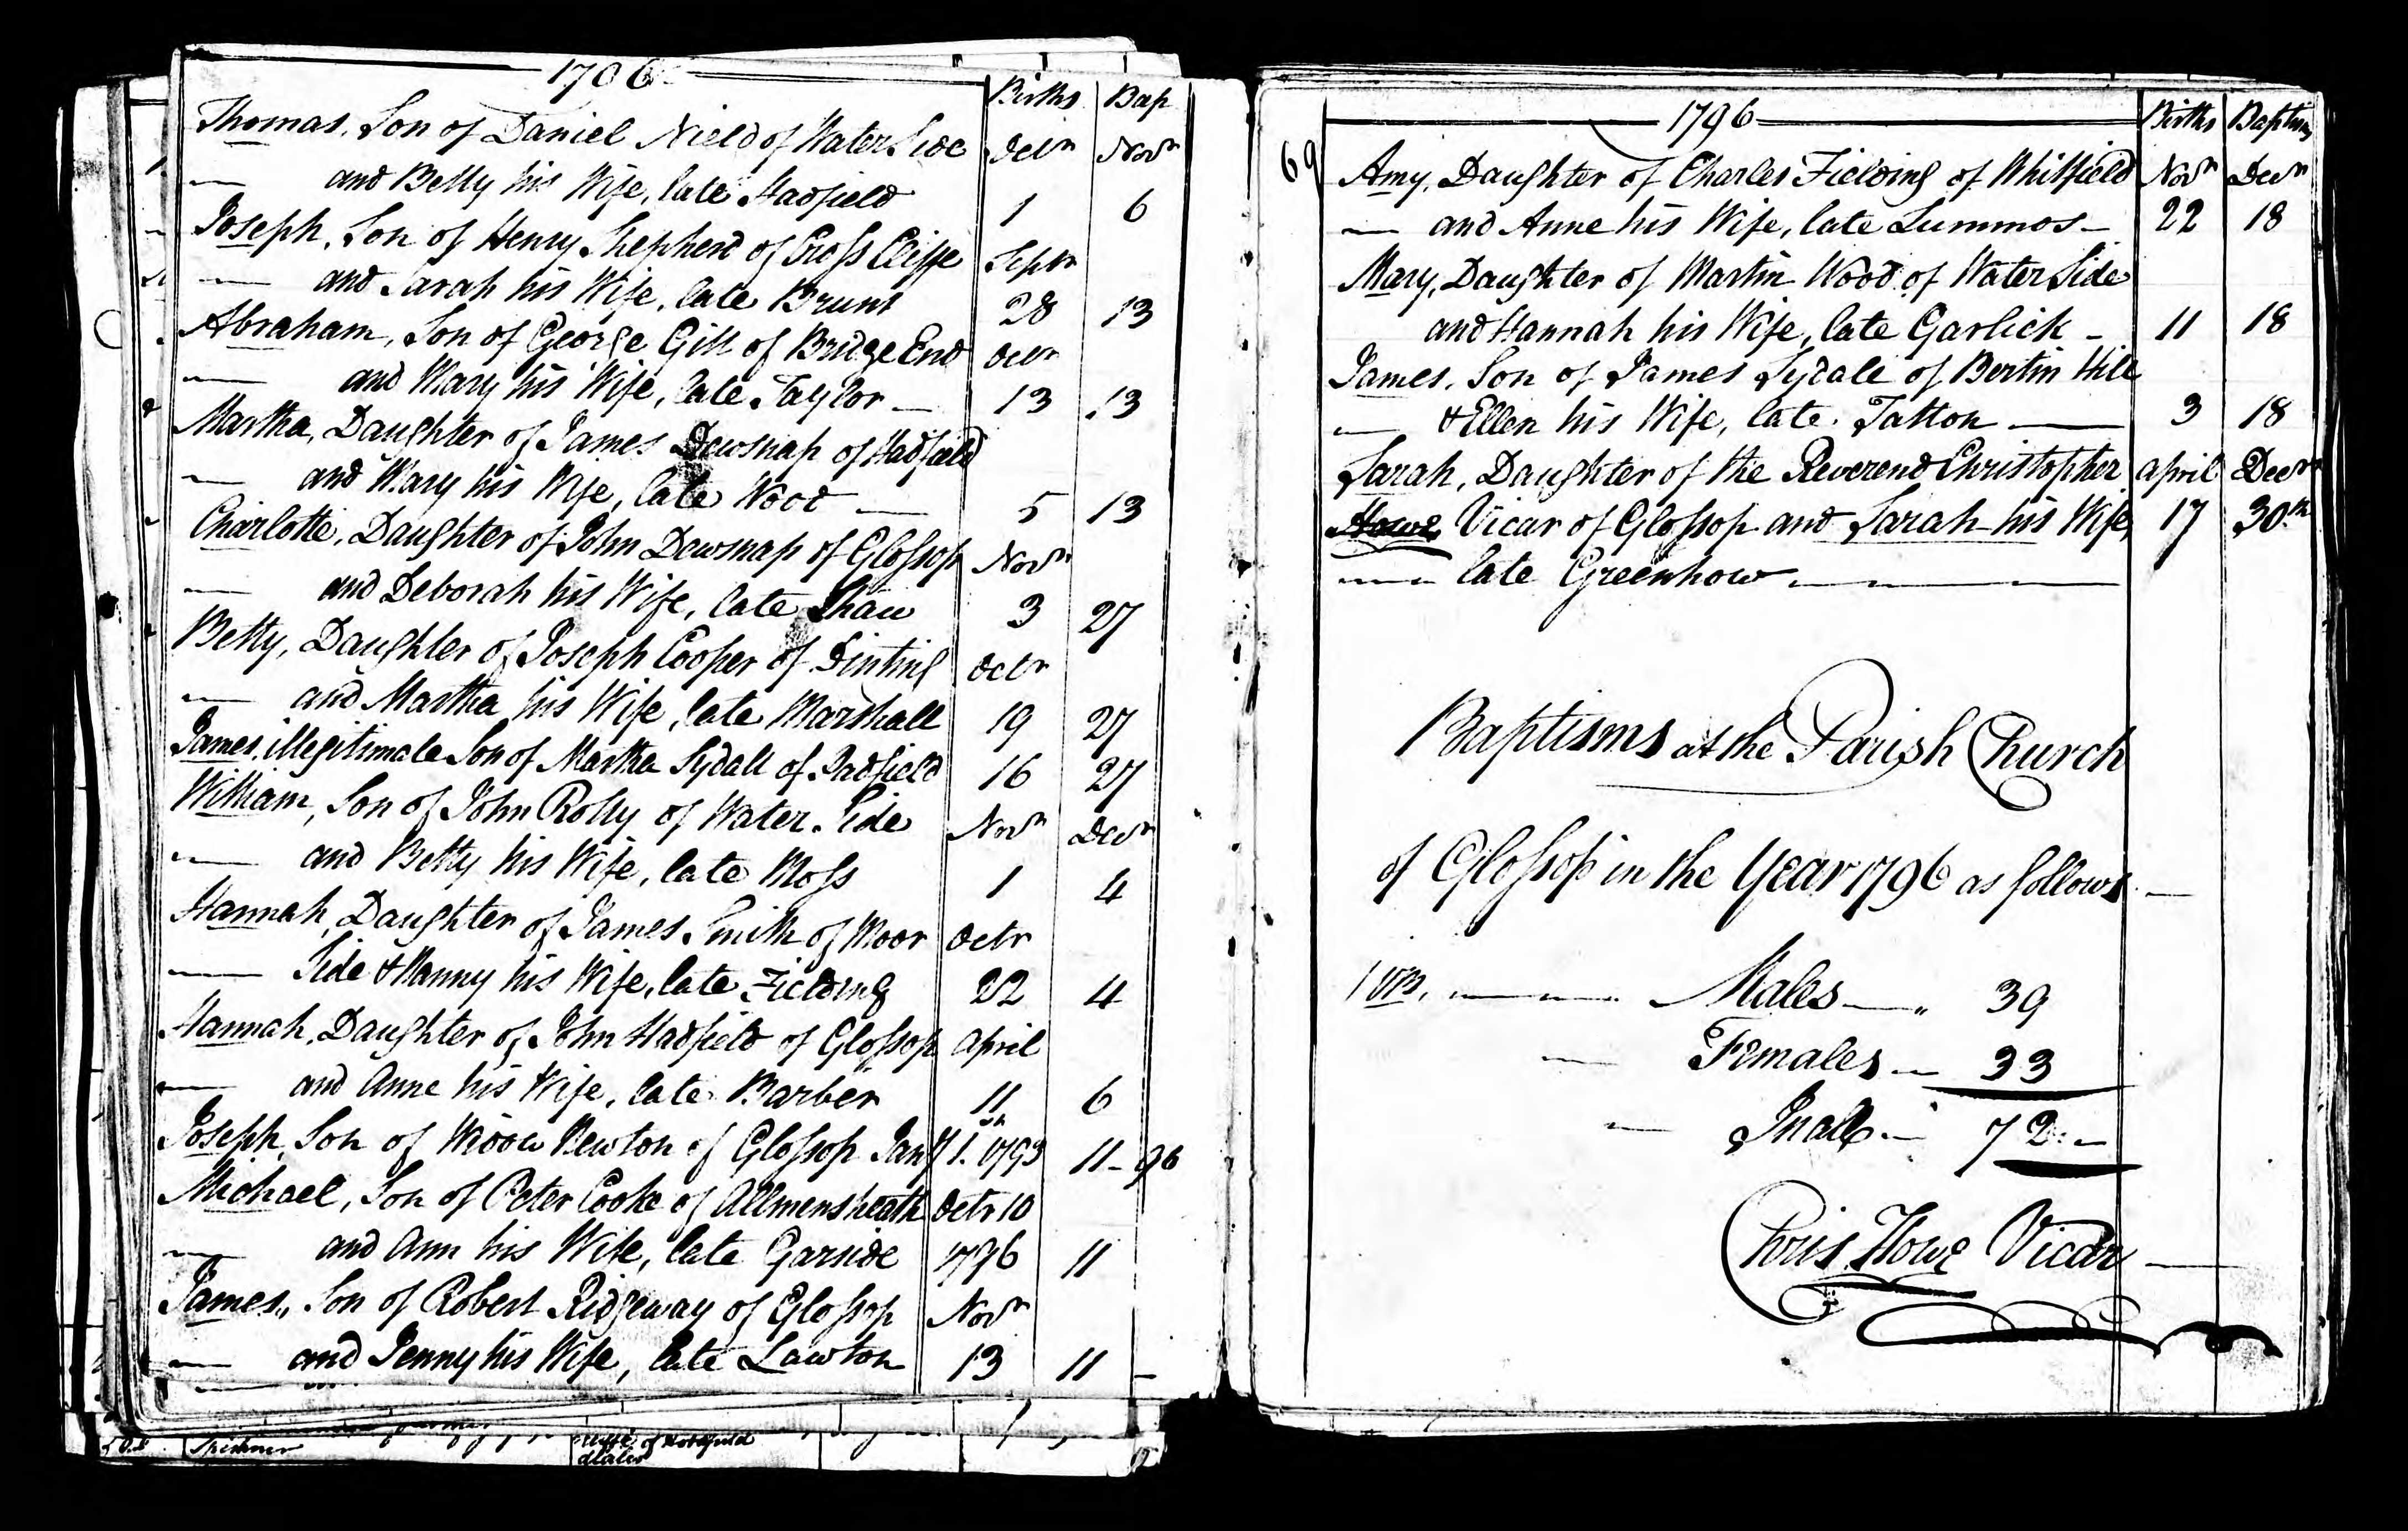 1796
Births Bap
Thomas, Son of Daniel Nield of Water Side Octr Novr
and Betty his Wife, late Hadfield 1 6
Joseph, Son of Henry Shepherd of Cross Cliffe Septr
and Sarah his Wife, late Brunt 28 13
Abraham, Son of George Gill of Bridge End Octr
and Mary his Wife, late Taylor 13 13
Martha, Daughter of James Dewsnap of Hadfield
and Mary his Wife, late Wood 5 13
Charlotte, Daughter of John Dewsnap of Glossop Novr
and Deborah his Wife, late Shaw 3 27
Betty, Daughter of Joseph Cooper of Dinting Octr
and Martha his Wife, late Marshall 19 27
James, illegitimate Son of Martha Sydall of Padfield 16 27
William, Son of John Rolly of Water Side Novr Decr
and Betty his Wife, late Moss 1 4
Hannah, Daughter of James Smith of Moor Octr
Side & Nanny his Wife, late Fielding 22 4
Hannah, Daughter of John Hadfield of Glossop April
and Anne his Wife, late Barber 11 6
Joseph, Son of Widow Newton of Glossop Jany 1st 1793 11-96
Michael, Son of Peter Cooke of Allmensheath Octr 10
and Ann his Wife, late Garside 1796 11
James, Son of Robert Ridgeway of Glossop Novr
and Jenny his Wife, late Lawton 13 11
Spinner
of Hadfield
69
1796 Births Baptisms
Amy, Daughter of Charles Fielding of Whitfield Novr Decr
and Anne his Wife, late Lummos 22 18
Mary, Daughter of Martin Wood of Water Side
and Hannah his Wife, late Garlick 11 18
James, Son of James Sydale of Bertin Hill
& Ellen his Wife, late Tatton 3 18
Sarah, Daughter of the Reverend Christopher April Decr
Howe Vicar of Glossop and Sarah his Wife, 17 30th
late Greenhow
Baptisms at the Parish Church
of Glossop in the Year 1796 as follows
Males 39
Females 33
In all 72
Chris. Howe Vicar